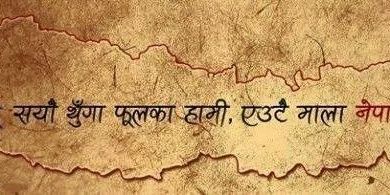 सयौ थुँगा फूलका हामी, एउटै माला नेपा